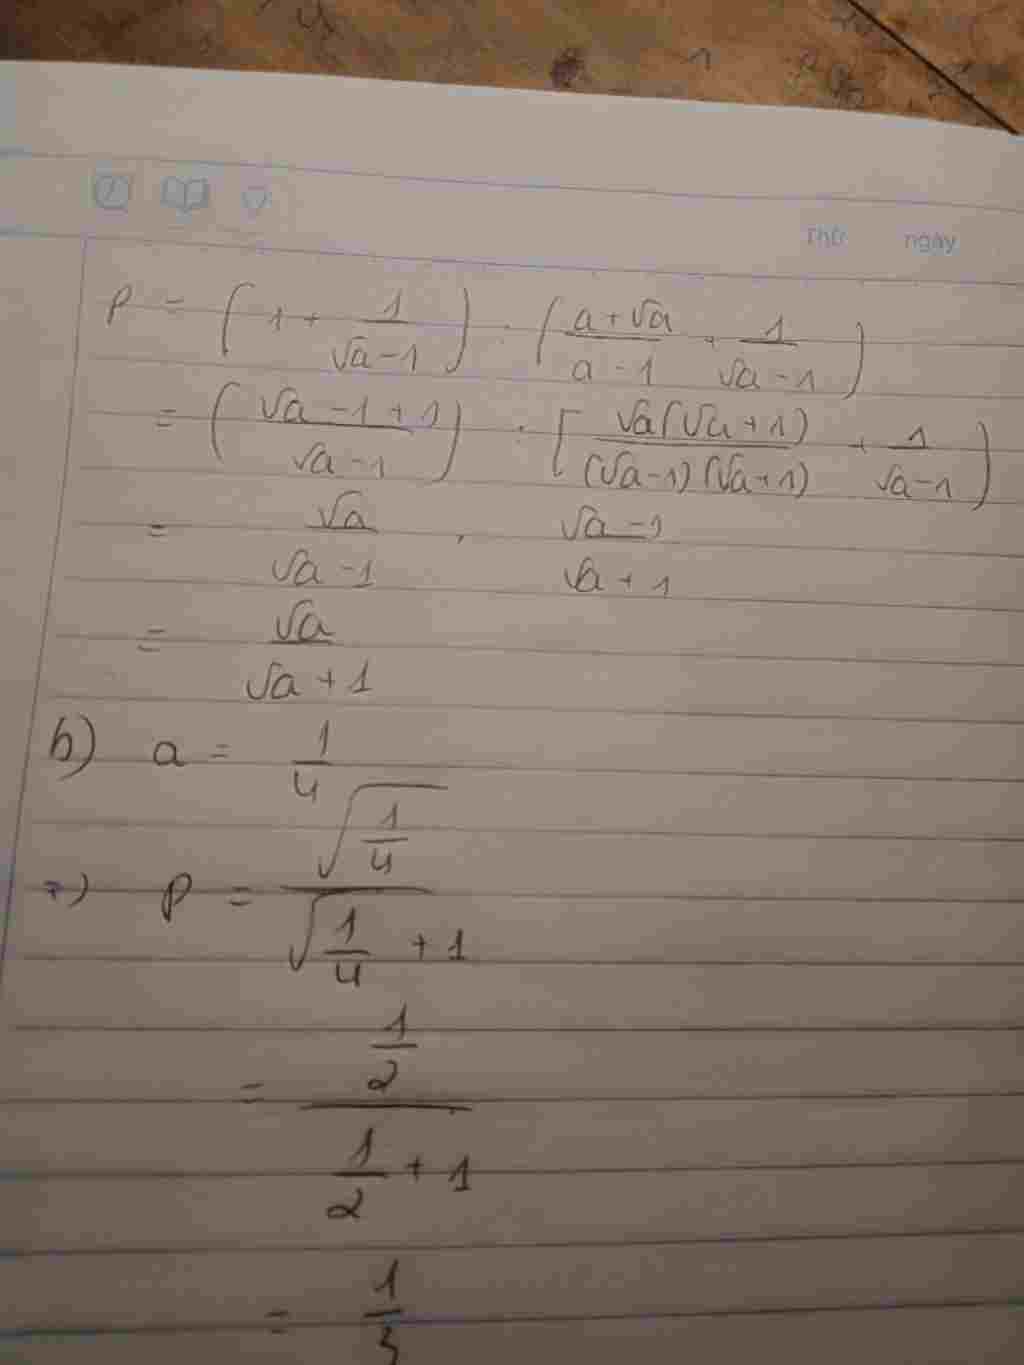 Thứ ngày
P = (1 + 1/(√a - 1)) : ((a + √a)/(a - 1) + 1/(√a - 1))
= ((√a - 1 + 1)/(√a - 1)) : [(√a(√a + 1))/((√a - 1)(√a + 1)) + 1/(√a - 1))
= √a/(√a - 1) . (√a - 1)/(√a + 1)
= √a/(√a + 1)
b) a = 1/4
=) P = √(1/4)/(√(1/4) + 1)
= (1/2)/(1/2 + 1)
= 1/3